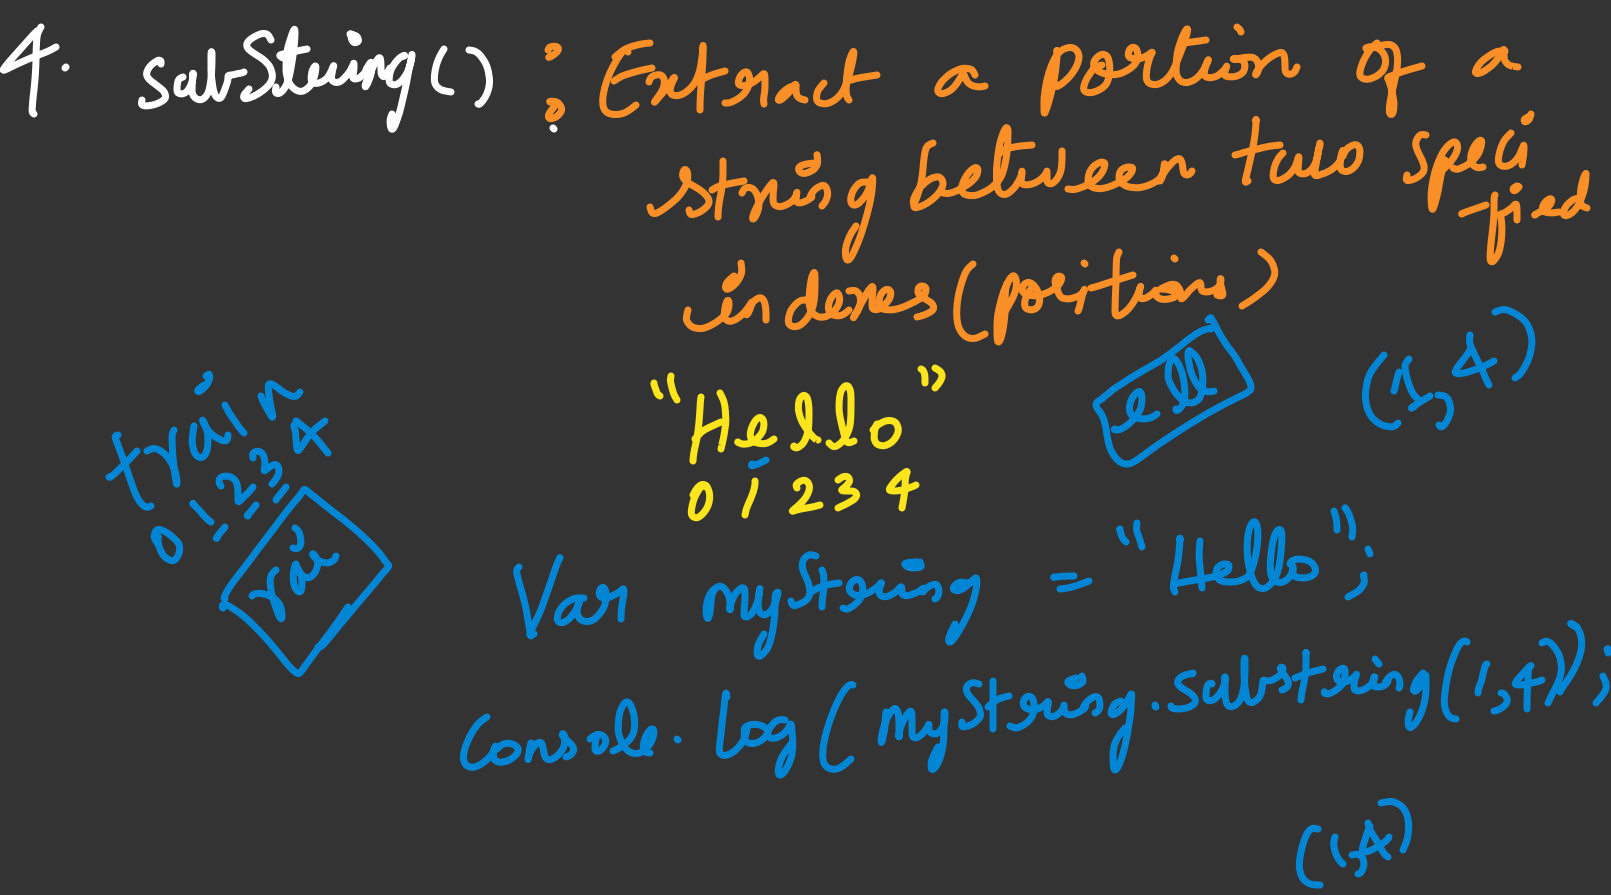 4. subString() : Extract a portion of a
string between two speci
-fied
indexes (positions)
"Hello"
0 1 2 3 4
ell
(1,4)
train
0 1 2 3 4
rai
Var myString = "Hello";
Console.log(myString.substring(1,4));
(1,4)